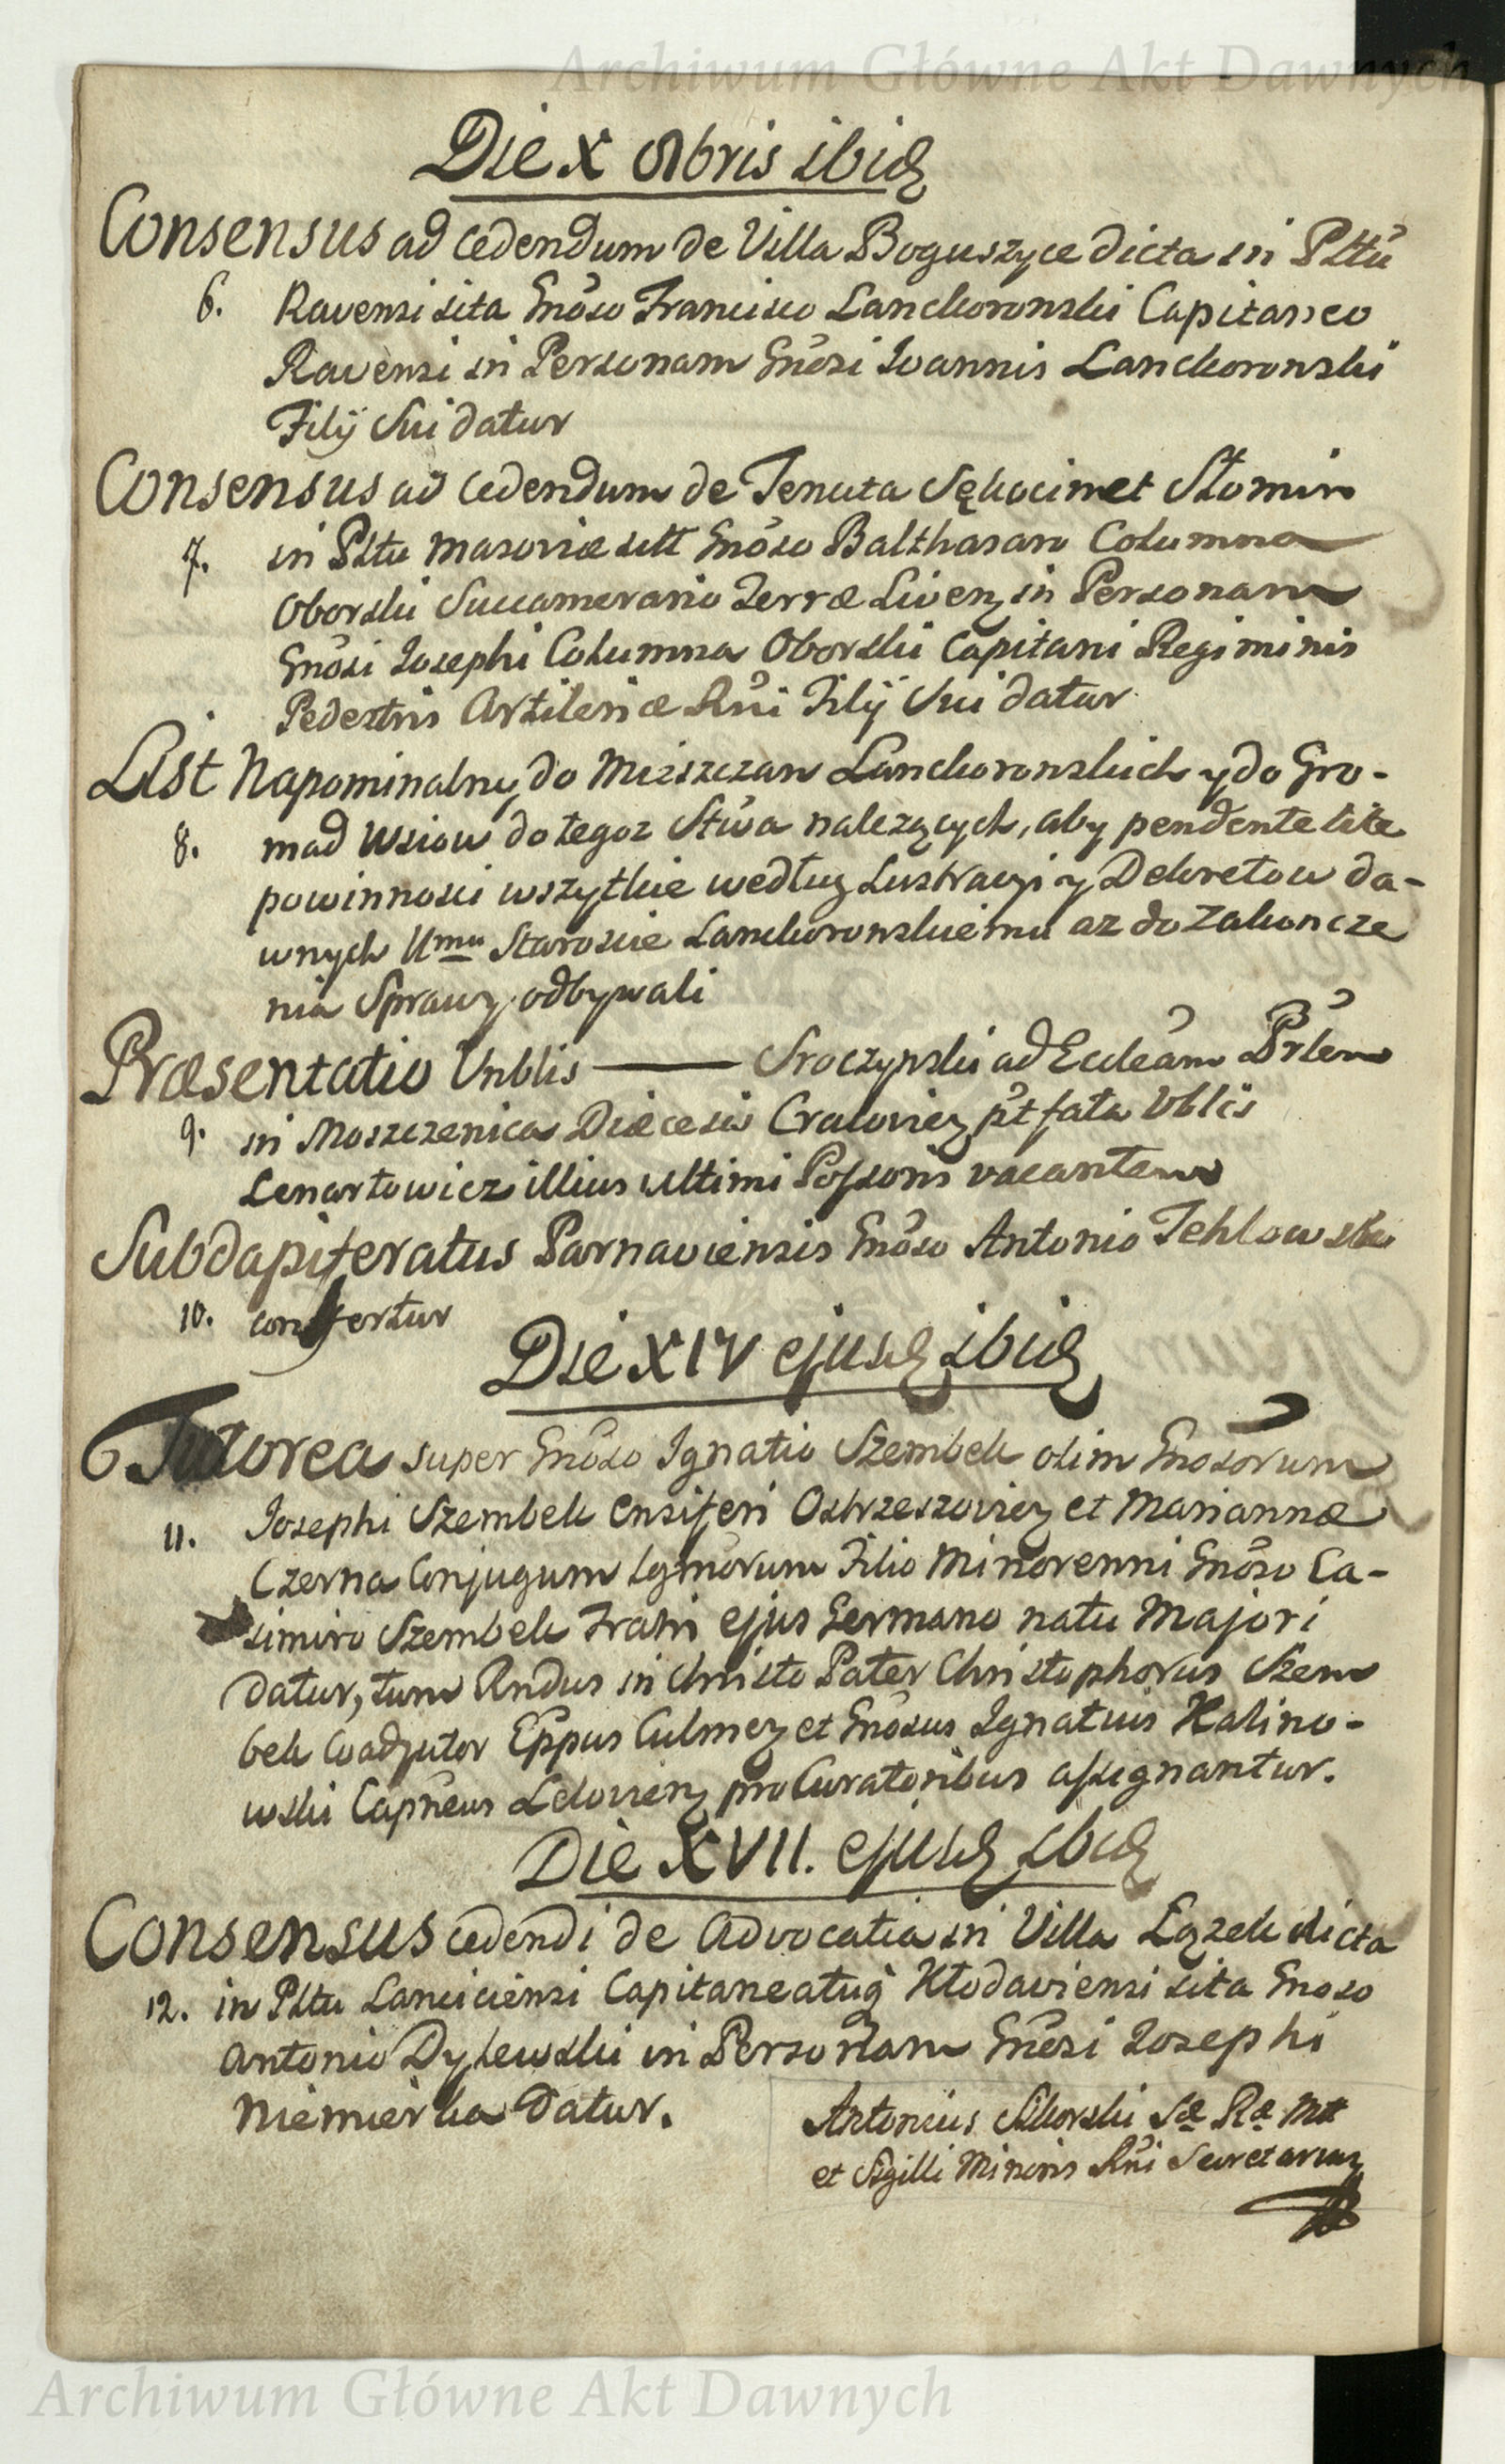 Archiwum Główne Akt Dawnych
Die X 9bris ibid
Consensus ad cedendum de Villa Boguszyce dicta in Plttu
6. Ravensi sita Gnoso Francisco Lanckoronski Capitaneo
Ravensi in Personam Gnosi Ioannis Lanckoronski
Filij sui datur
Consensus ad cedendum de Tenuta Sękocin et Słomin
7. in Pltu Masoviæ sitt Gnoso Balthasaro Columna
Oborski Succamerario Terræ Livens in Personam
Gnosi Iosephi Columna Oborski Capitani Regiminis
Pedestris Artileriæ Rni Filij sui datur
List Napominalny do Mieszczan Lanckoronskich y do Gro-
8. mad Wsiow do tegoz Stwa nalezących, aby pendente lite
powinnosci wszytkie według Lustracyi y Dekretow da-
wnych Umu Staroscie Lanckoronskiemu az do Zakoncze
nia Sprawy odbywali
Præsentatio Vnblis —— Sroczynski ad Eccleam Prlem
9. in Moszczenica Diæcesis Cracovien pt fata Vblis
Lenartowicz illius ultimi Possoris vacantem
Subdapiferatus Parnaviensis Gnoso Antonio Tehlowski
10. confertur
Die XIV ejusd ibid
Tutorea super Gnoso Ignatio Szembek olim Gnosorum
11. Iosephi Szembek Ensiferi Ostrzeszovien et Mariannæ
Czerna Conjugum Lgmorum Filio Minorenni Gnoso Ca-
simiro Szembek Fratri ejus Germano natu Majori
datur, tum Rndus in Christo Pater Christophorus Szem
bek Coadjutor Eppus Culmen et Gnosus Ignatius Kalino-
wski Capneus Lelovien pro Curatoribus assignantur.
Die XVII. ejusd ibid
Consensus cedendi de Advocatia in Villa Łązek dicta
12. in Pltu Lanciciensi Capitaneatuq Kłodaviensi sita Gnoso
Antonio Dylewski in Personam Gnosi Iosephi
Niemierka Datur.
Antonius Sikorski Sæ Ræ Mtt
et Sigilli Minoris Rni Secretarius
Archiwum Główne Akt Dawnych